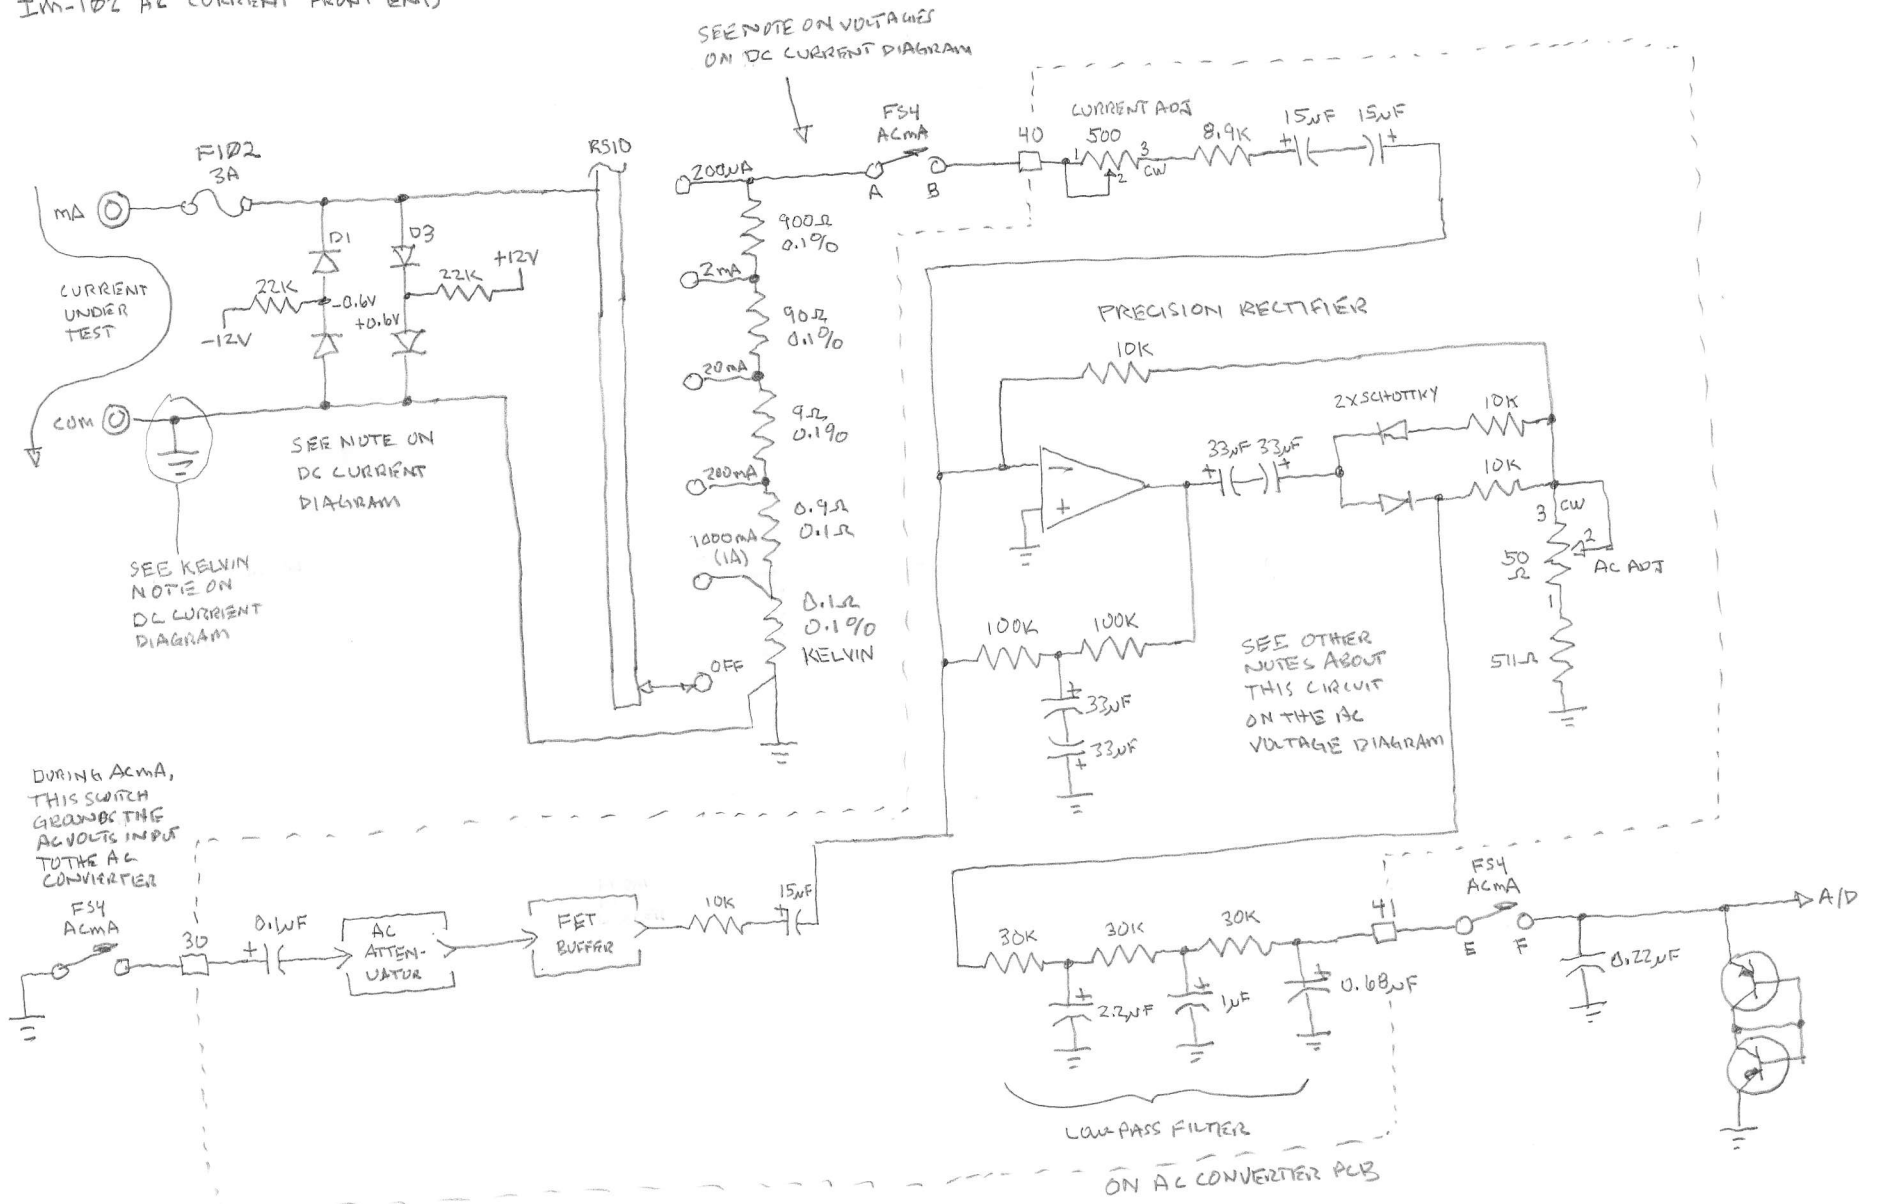 IM-102 AC CURRENT FRONT END
SEE NOTE ON VOLTAGES
ON DC CURRENT DIAGRAM
F102
3A
mA
COM
CURRENT
UNDER
TEST
D1
D3
22K
-12V
-0.6V
+0.6V
22K
+12V
SEE NOTE ON
DC CURRENT
DIAGRAM
SEE KELVIN
NOTE ON
DC CURRENT
DIAGRAM
RS10
200uA
900Ω
0.1%
2mA
90Ω
0.1%
20mA
9Ω
0.1%
200mA
0.9Ω
0.1Ω
1000mA
(1A)
0.1Ω
0.1%
KELVIN
OFF
FS4
ACmA
A
B
40
CURRENT ADJ
500
1
3
CW
2
8.9K
15uF
15uF
+
+
PRECISION RECTIFIER
10K
-
+
33uF
33uF
+
+
2XSCHOTTKY
10K
10K
3
CW
2
50
Ω
AC ADJ
1
511Ω
100K
100K
+
33uF
33uF
+
SEE OTHER
NOTES ABOUT
THIS CIRCUIT
ON THE AC
VOLTAGE DIAGRAM
DURING ACmA,
THIS SWITCH
GROUNDS THE
AC VOLTS INPUT
TO THE AC
CONVERTER
FS4
ACmA
30
0.1uF
+
AC
ATTEN-
UATOR
FET
BUFFER
10K
15uF
+
30K
30K
30K
+
2.2uF
+
1uF
+
0.68uF
LOW PASS FILTER
41
FS4
ACmA
E
F
0.22uF
A/D
ON AC CONVERTER PCB